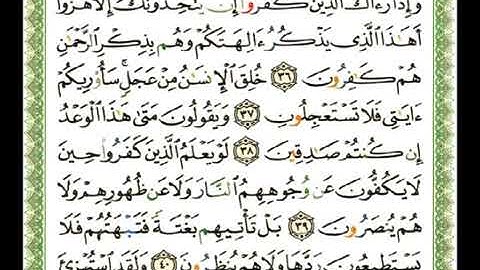 وَإِذَا رَءَاكَ ٱلَّذِينَ كَفَرُوٓا۟ إِن يَتَّخِذُونَكَ إِلَّا هُزُوًا
أَهَٰذَا ٱلَّذِى يَذْكُرُ ءَالِهَتَكُمْ وَهُم بِذِكْرِ ٱلرَّحْمَٰنِ
هُمْ كَٰفِرُونَ ٣٦ خُلِقَ ٱلْإِنسَٰنُ مِنْ عَجَلٍ ۚ سَأُو۟رِيكُمْ
ءَايَٰتِى فَلَا تَسْتَعْجِلُونِ ٣٧ وَيَقُولُونَ مَتَىٰ هَٰذَا ٱلْوَعْدُ
إِن كُنتُمْ صَٰدِقِينَ ٣٨ لَوْ يَعْلَمُ ٱلَّذِينَ كَفَرُوا۟ حِينَ
لَا يَكُفُّونَ عَن وُجُوهِهِمُ ٱلنَّارَ وَلَا عَن ظُهُورِهِمْ وَلَا
هُمْ يُنصَرُونَ ٣٩ بَلْ تَأْتِيهِم بَغْتَةً فَتَبْهَتُهُمْ فَلَا
يَسْتَطِيعُونَ رَدَّهَا وَلَا هُمْ يُنظَرُونَ ٤٠ وَلَقَدِ ٱسْتُهْزِئَ